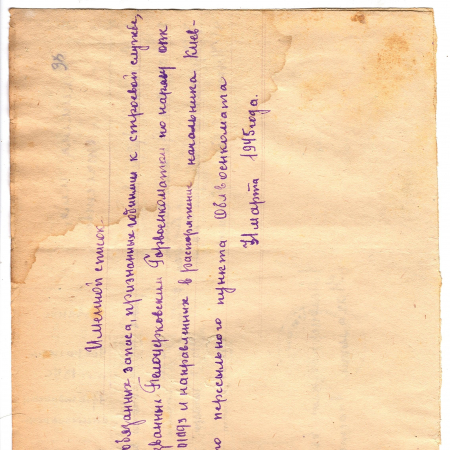 93
Именной список
обязанных запаса, признанных годными к строевой службе,
званных Белоцерковским Горвоенкоматом по наряду ОВК
01193 и направленных в распоряжение начальника Киев-
го пересыльного пункта Облвоенкомата
31 марта 1945 года.